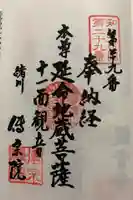 第二十九番
奉納経
本尊 延命地蔵菩薩
十一面観音
緒川
傳宗院